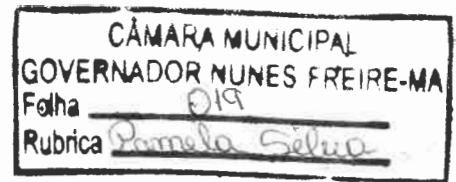 CÂMARA MUNICIPAL
GOVERNADOR NUNES FREIRE-MA
Folha 019
Rubrica Pamela Silva